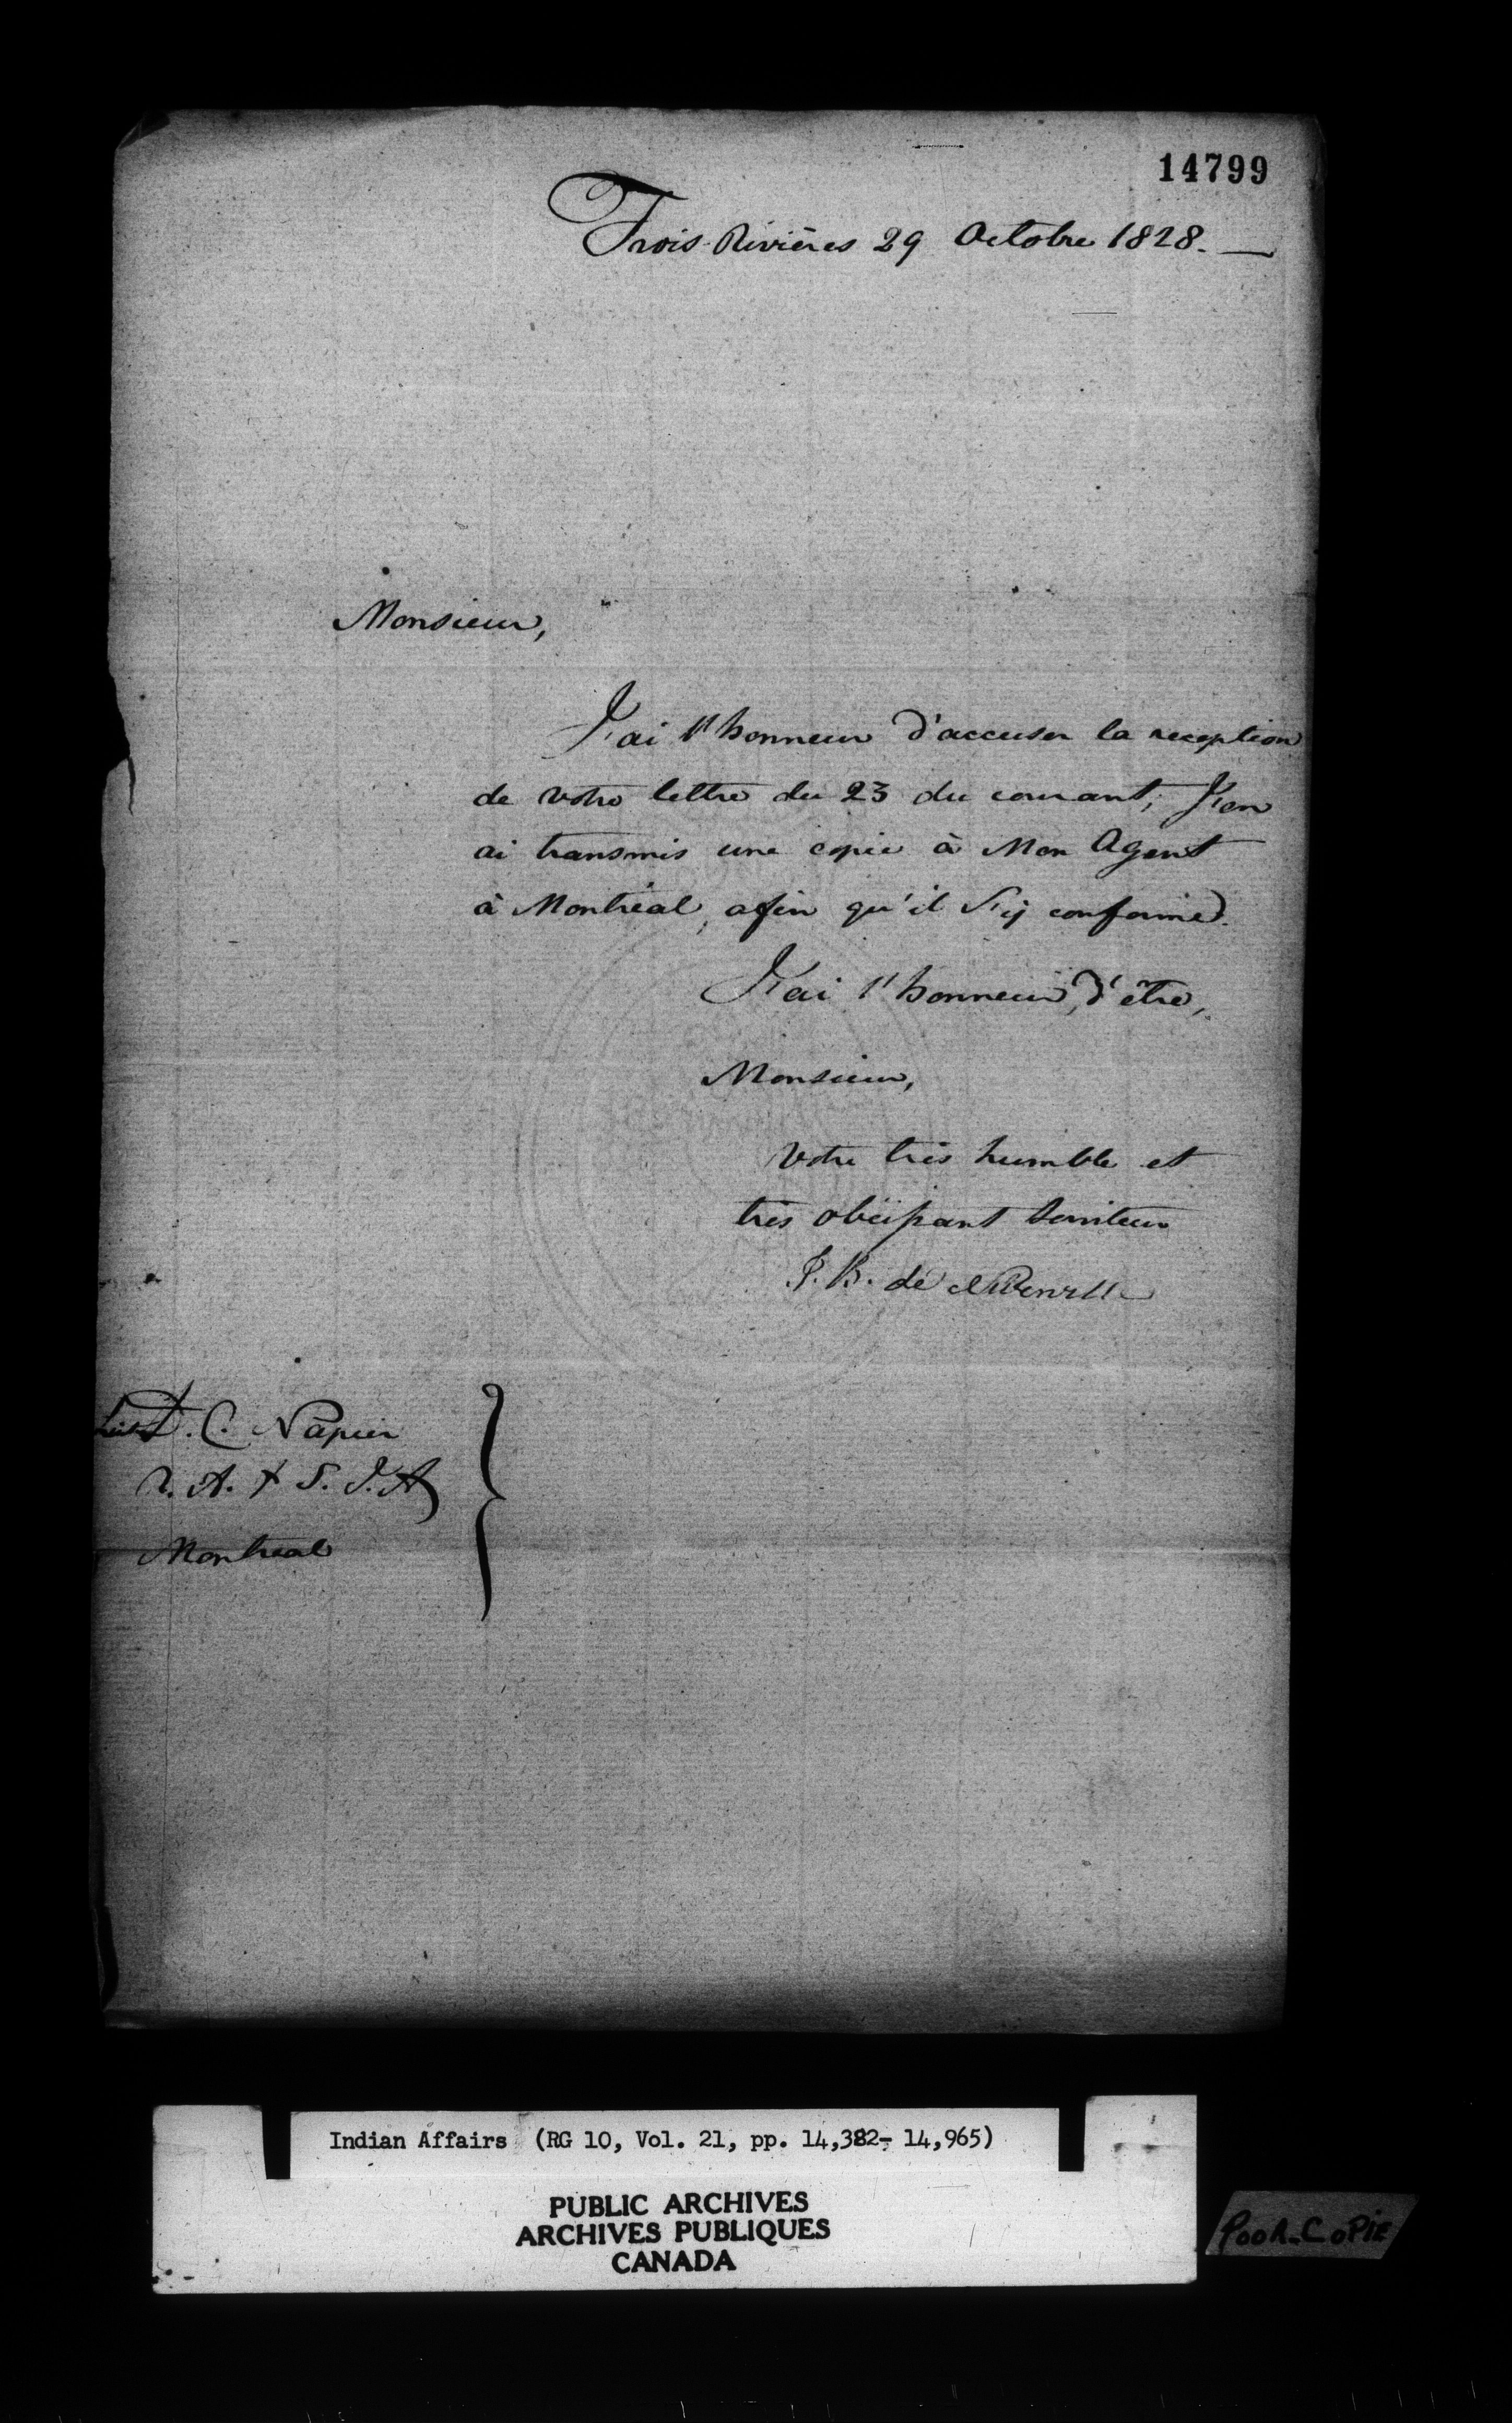 14799
Trois-Rivières 29 Octobre 1828.
Monsieur,
J'ai l'honneur d'accuser la reception
de votre lettre du 23 du courant; J'en
ai transmis une copie à Mon Agent
à Montréal, afin qu'il s'y conforme.
J'ai l'honneur, d'être,
Monsieur,
Votre très humble et
très obéissant Serviteur
de Niverville
Lieut. C. Napier
R. A. & S. I. A
Montreal
Indian Affairs (RG 10, Vol. 21, pp. 14,382- 14,965)
PUBLIC ARCHIVES
ARCHIVES PUBLIQUES
CANADA
POOR-COPIE